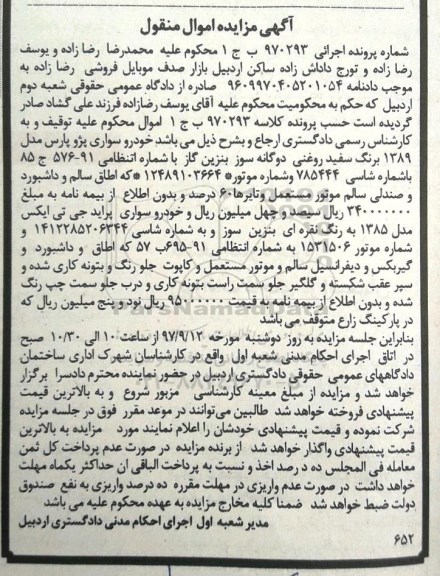 آگهی مزایده اموال منقول
شماره پرونده اجرائی ۹۷۰۲۹۳ ب ج ۱ محکوم علیه محمدرضا رضا زاده و یوسف
رضا زاده و تورج داداش زاده ساکن اردبیل بازار صدف موبایل فروشی رضا زاده به
موجب دادنامه ۹۶۰۹۹۷۰۴۰۵۲۰۱۰۵۴ صادره از دادگاه عمومی حقوقی شعبه دوم
اردبیل که حکم به محکومیت محکوم علیه آقای یوسف رضازاده فرزند علی گشاد صادر
گردیده است حسب پرونده کلاسه ۹۷۰۲۹۳ ب ج ۱ اموال محکوم علیه توقیف و به
کارشناس رسمی دادگستری ارجاع و بشرح ذیل می باشد خودرو سواری پژو پارس مدل
۱۳۸۹ برنگ سفید روغنی دوگانه سوز بنزین گاز با شماره انتظامی ۹۱-۵۷۶ ج ۸۵
باشماره شاسی ۷۸۵۴۴۴ وشماره موتور* ۱۲۴۸۹۱۰۳۶۶۴ *که اطاق سالم و داشبورد
و صندلی سالم موتور مستعمل وتایرها ۶۰ درصد و بدون اطلاع از بیمه نامه به مبلغ
۳۴۰۰۰۰۰۰۰ ریال سیصد و چهل میلیون ریال و خودرو سواری پراید جی تی ایکس
مدل ۱۳۸۵ به رنگ نقره ای بنزین سوز و به شماره شاسی ۱۴۱۲۲۸۵۲۰۶۳۴۴ و
شماره موتور ۱۵۳۱۵۰۶ به شماره انتظامی ۹۱-۶۹۵ب ۵۷ که اطاق و داشبورد و
گیربکس و دیفرانسیل سالم و موتور مستعمل و کاپوت جلو رنگ و بتونه کاری شده و
سپر عقب شکسته و گلگیر جلو سمت راست بتونه کاری و درب جلو سمت چپ رنگ
شده و بدون اطلاع از بیمه نامه به قیمت ۹۵۰۰۰۰۰۰ ریال نود و پنج میلیون ریال که
در پارکینگ زارع متوقف می باشد
بنابراین جلسه مزایده به روز دوشنبه مورخه ۹۷/۹/۱۲ از ساعت ۱۰ الی ۱۰/۳۰ صبح
در اتاق اجرای احکام مدنی شعبه اول واقع در کارشناسان شهرک اداری ساختمان
دادگاههای عمومی حقوقی دادگستری اردبیل در حضور نماینده محترم دادسرا برگزار
خواهد شد و مزایده از مبلغ معینه کارشناسی مزبور شروع و به بالاترین قیمت
پیشنهادی فروخته خواهد شد طالبین می‌توانند در موعد مقرر فوق در جلسه مزایده
شرکت نموده و قیمت پیشنهادی خودشان را اعلام نمایند مورد مزایده به بالاترین
قیمت پیشنهادی واگذار خواهد شد از برنده مزایده در صورت عدم پرداخت کل ثمن
معامله فی المجلس ده درصد اخذ و نسبت به پرداخت الباقی ان حداکثر یکماه مهلت
خواهد داشت در صورت عدم واریزی در مهلت مقرره ده درصد واریزی به نفع صندوق
دولت ضبط خواهد شد ضمنا کلیه مخارج مزایده به عهده محکوم علیه می باشد
مدیر شعبه اول اجرای احکام مدنی دادگستری اردبیل
۶۵۲